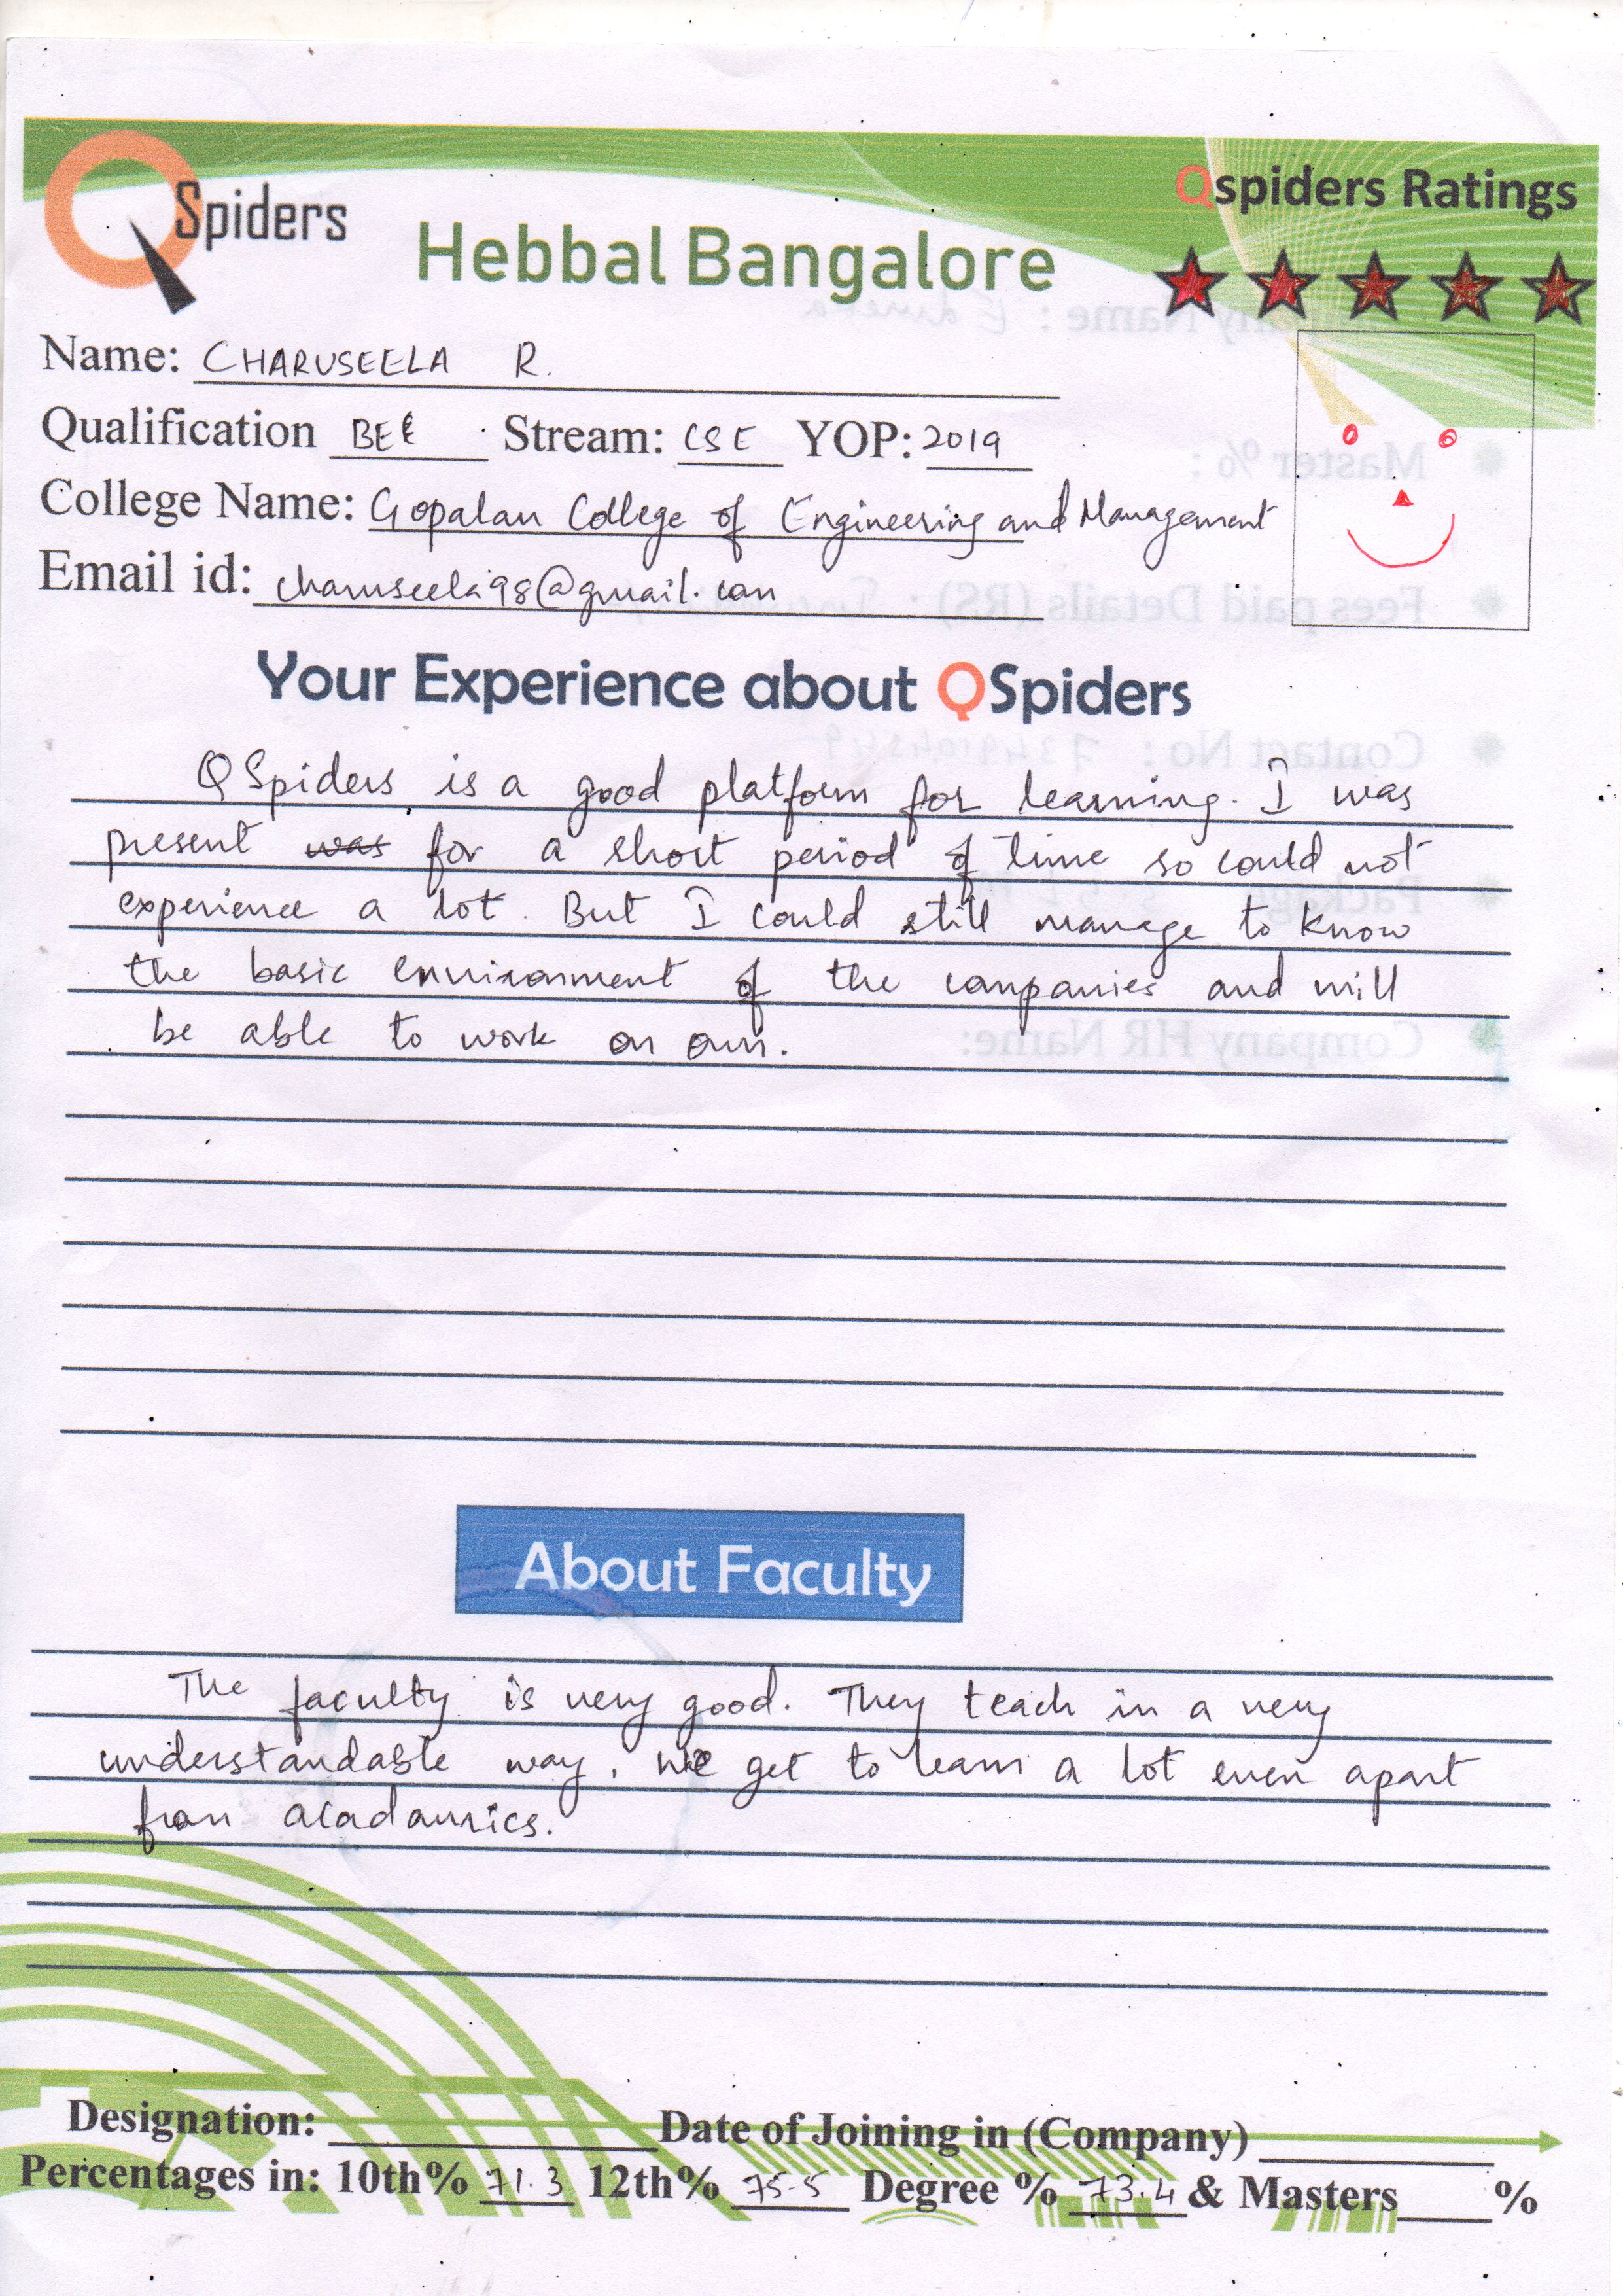 QSpiders
Hebbal Bangalore
Qspiders Ratings
Name: CHARUSEELA R.
Qualification BE Stream: CSE YOP: 2019
College Name: Gopalan College of Engineering and Management
Email id: charuseela98@gmail.com
Your Experience about QSpiders
QSpiders is a good platform for learning. I was
present was for a short period of time so could not
experience a lot. But I could still manage to know
the basic environment of the companies and will
be able to work on own.
About Faculty
The faculty is very good. They teach in a very
understandable way, we get to learn a lot even apart
from acadamics.
Designation: Date of Joining in (Company)
Percentages in: 10th% 71.3 12th% 75.5 Degree % 73.4 & Masters %